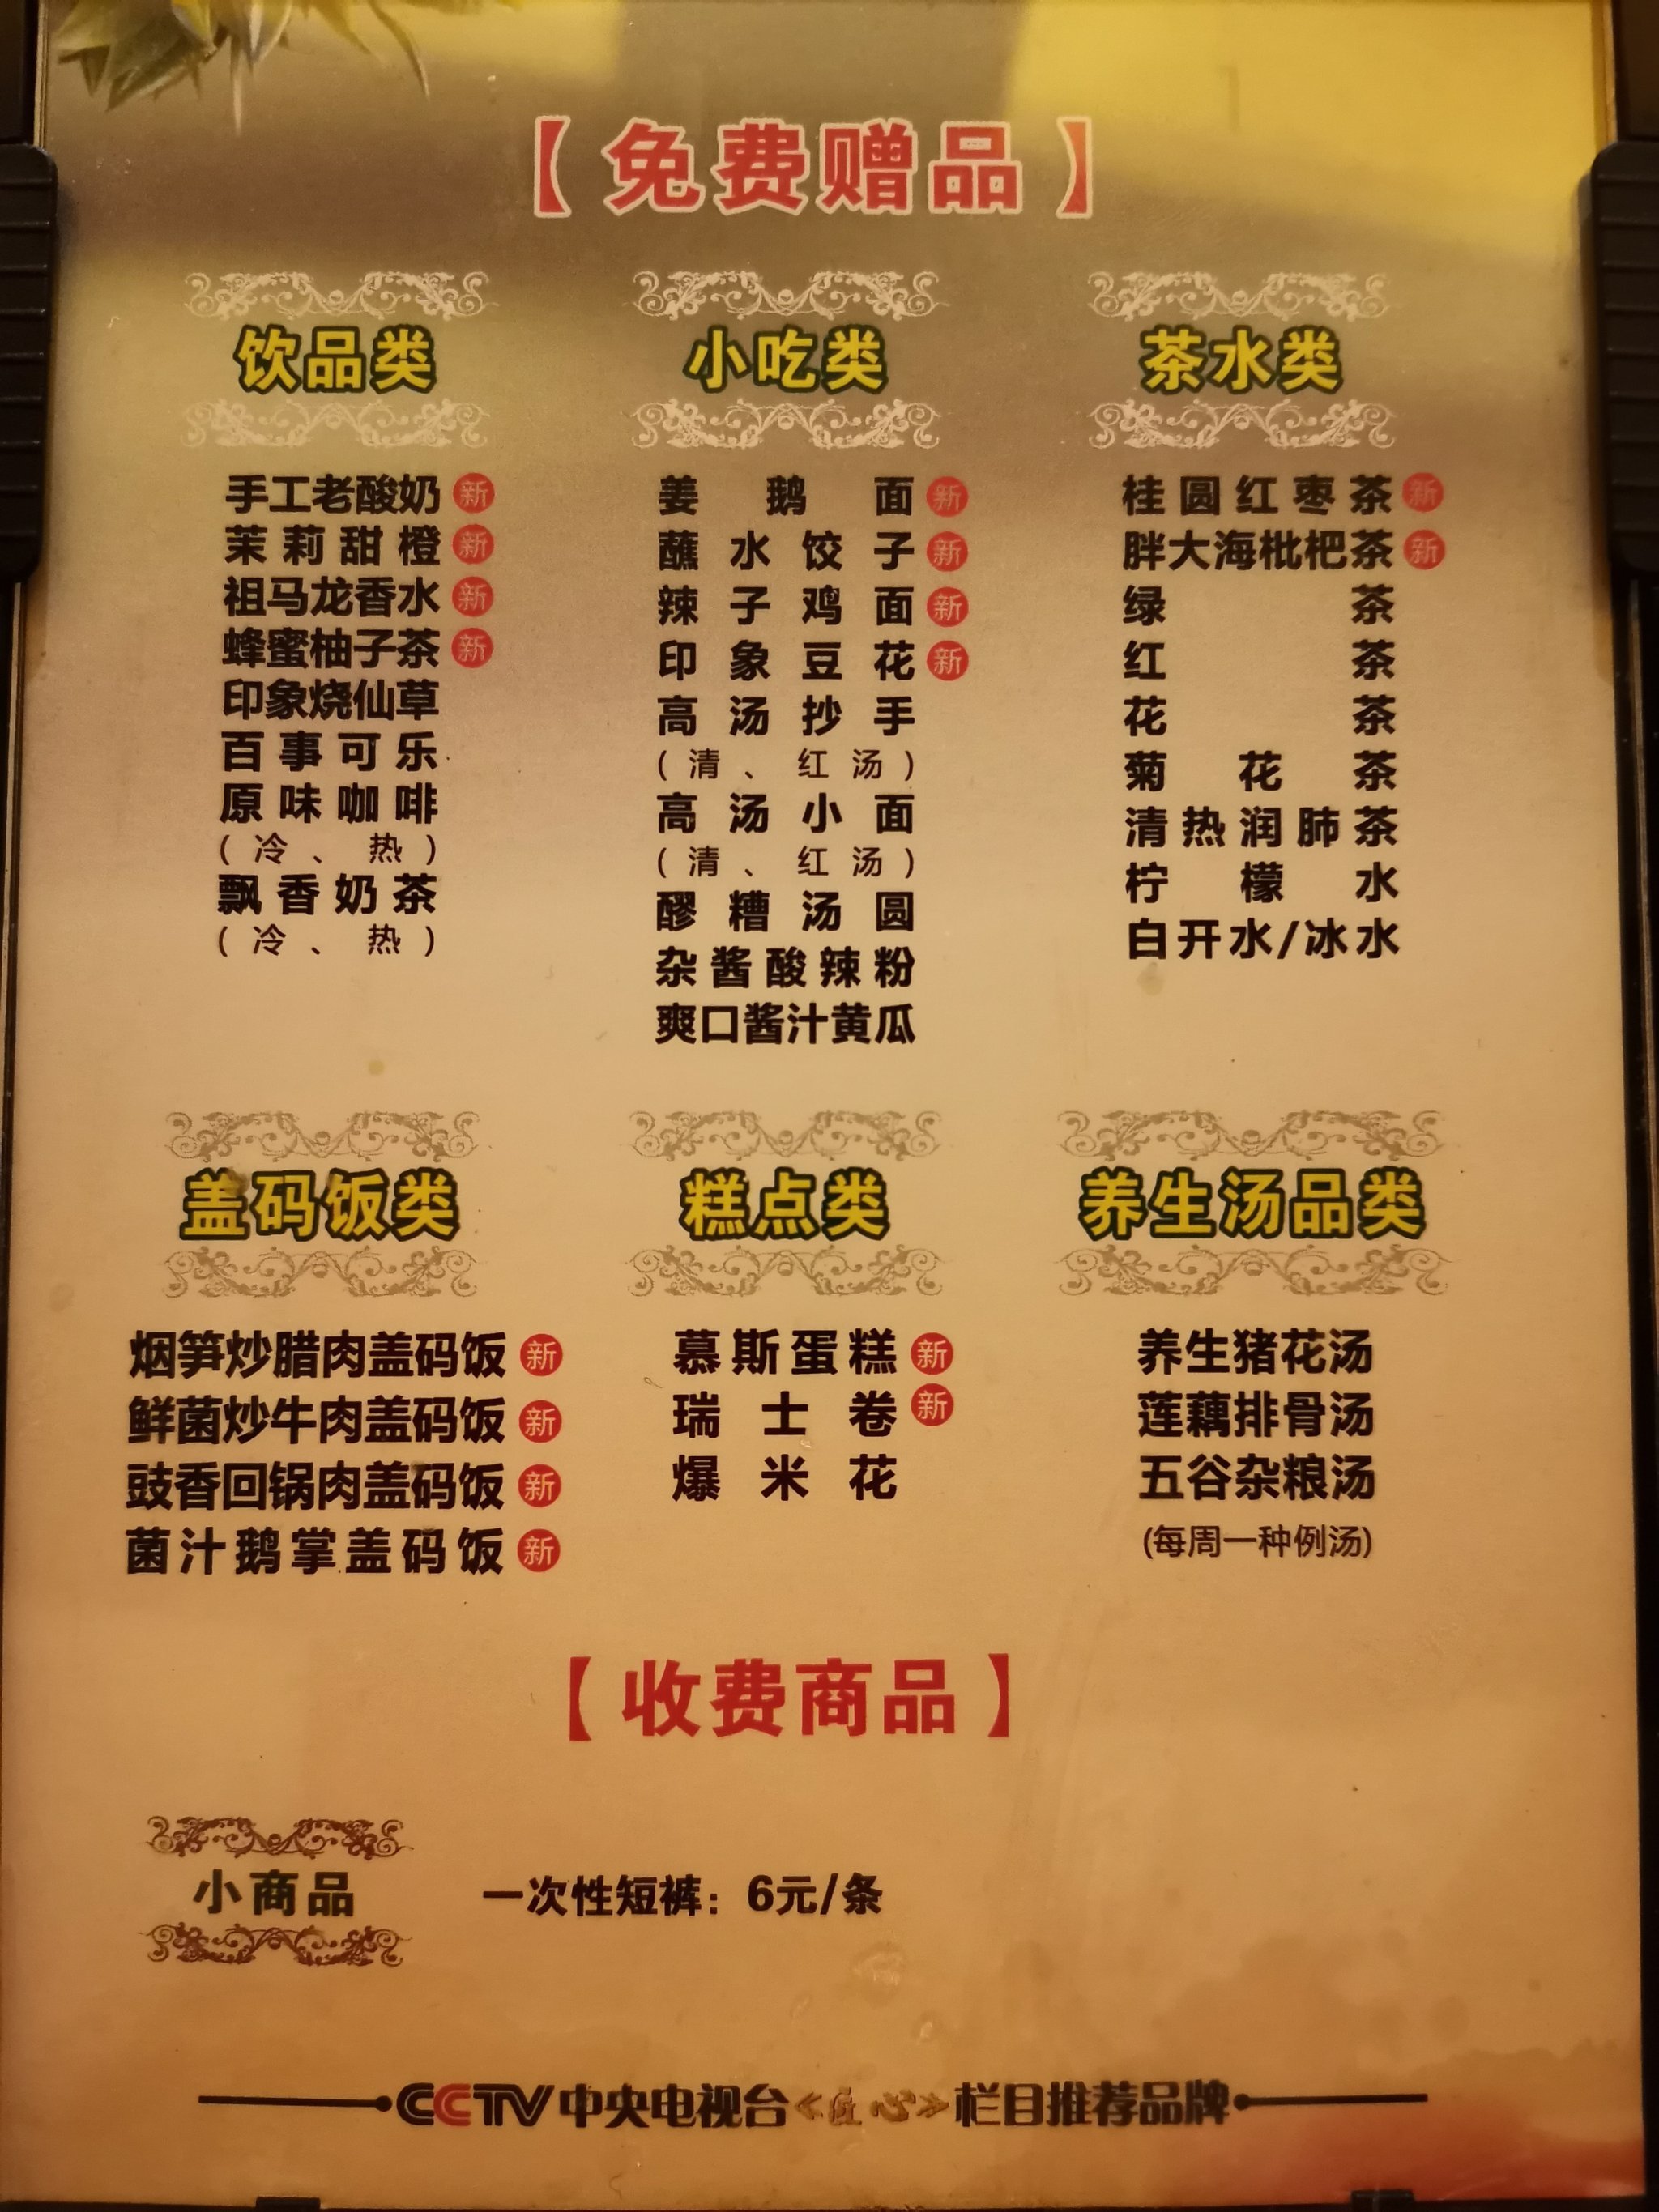 【免费赠品】
饮品类
手工老酸奶 新
茉莉甜橙 新
祖马龙香水 新
蜂蜜柚子茶 新
印象烧仙草
百事可乐
原味咖啡
(冷、热)
飘香奶茶
(冷、热)
小吃类
姜鹅面 新
蘸水饺子 新
辣子鸡面 新
印象豆花 新
高汤抄手
(清、红汤)
高汤小面
(清、红汤)
醪糟汤圆
杂酱酸辣粉
爽口酱汁黄瓜
茶水类
桂圆红枣茶 新
胖大海枇杷茶 新
绿茶
红茶
花茶
菊花茶
清热润肺茶
柠檬水
白开水/冰水
盖码饭类
烟笋炒腊肉盖码饭 新
鲜菌炒牛肉盖码饭 新
豉香回锅肉盖码饭 新
菌汁鹅掌盖码饭 新
糕点类
慕斯蛋糕 新
瑞士卷 新
爆米花
养生汤品类
养生猪花汤
莲藕排骨汤
五谷杂粮汤
(每周一种例汤)
【收费商品】
小商品
一次性短裤：6元/条
CCTV中央电视台《》栏目推荐品牌